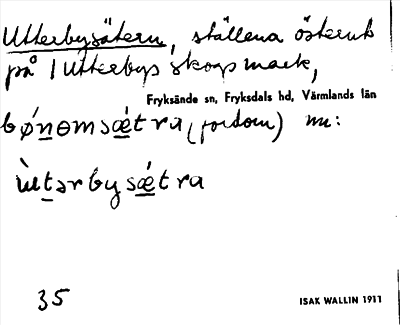 Utterbysätern, ställena österut
på Utterbys skogsmark,
Fryksände sn, Fryksdals hd, Värmlands län
bǿnomsǽtra (fordom) nu:
ùtərbysǽtra
35
ISAK WALLIN 1911